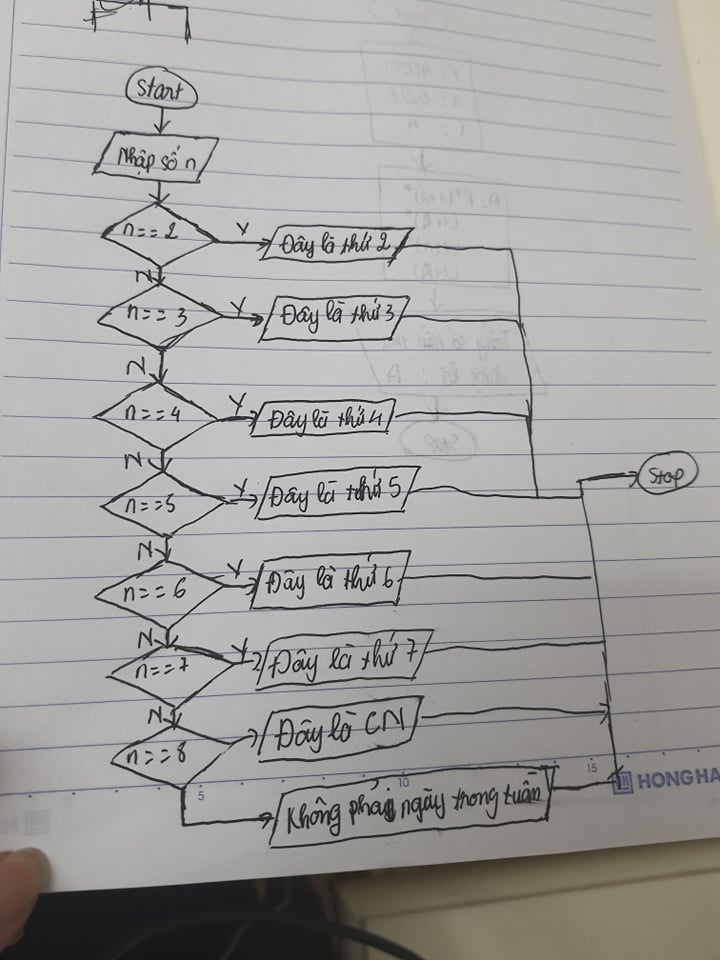 Start
Nhập số n
n==2
Y
Đây là thứ 2
N
n==3
Y
Đây là thứ 3
N
n==4
Y
Đây là thứ 4
N
n==5
Y
Đây là thứ 5
Stop
N
n==6
Y
Đây là thứ 6
N
n==7
Y
Đây là thứ 7
N
n==8
Đây là CN
Không phải ngày trong tuần
5
10
15
HONG HA